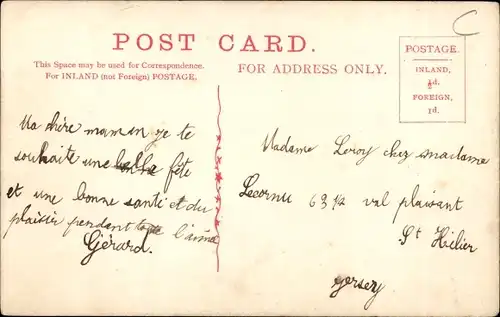 POST CARD.
This Space may be used for Correspondence.
For INLAND (not Foreign) POSTAGE.
FOR ADDRESS ONLY.
POSTAGE.
INLAND,
½d.
FOREIGN,
1d.
Ma chère maman je te
souhaite une fête
et une bonne santé et du
plaisir pendant toute l'anné
Gérard.
Madame Leroy chez madame
Lecornu 63½ val plaisant
St Hélier
gersey
C